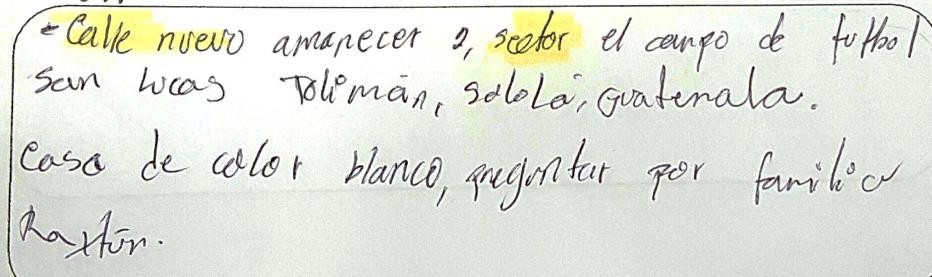 - Calle nuevo amanecer 2, sector el campo de futbol
San Lucas Tolimán, Sololá, Guatemala.
Casa de color blanco, preguntar por familia
Raxtún.